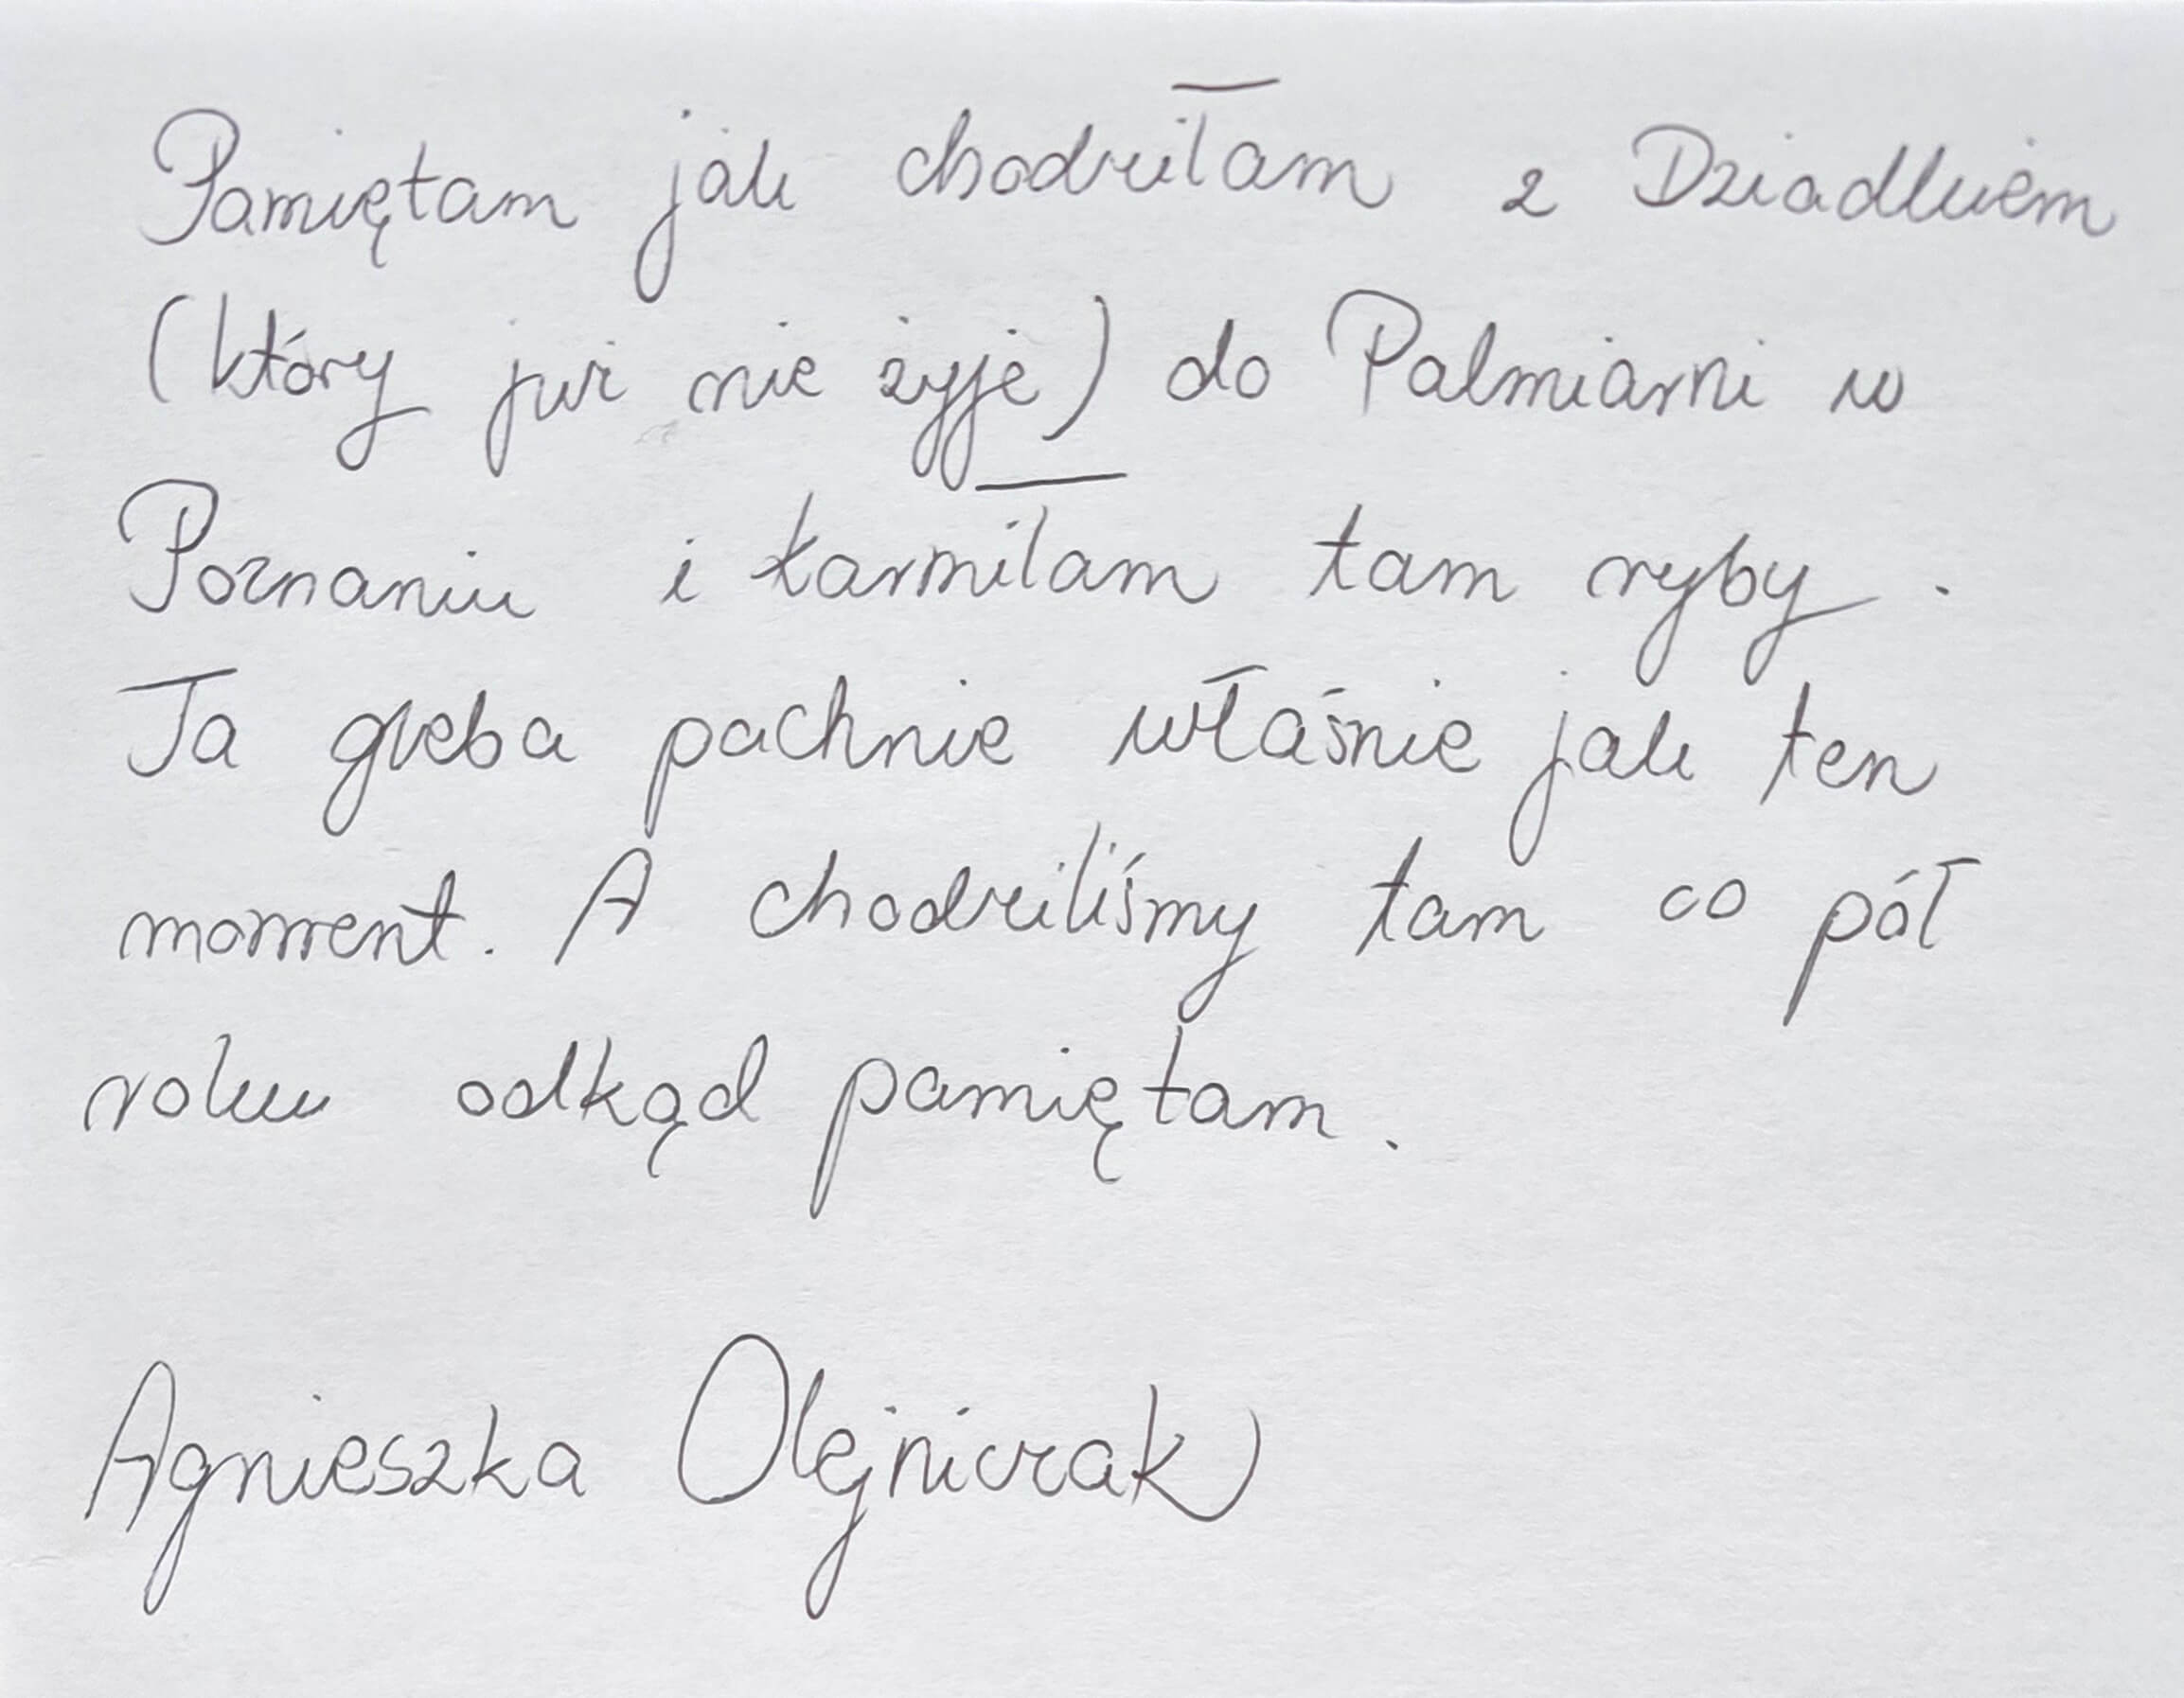 Pamiętam jak chodziłam z Dziadkiem
(który już nie żyje) do Palmiarni w
Poznaniu i karmiłam tam ryby.
Ta gleba pachnie właśnie jak ten
moment. A chodziliśmy tam co pół
roku odkąd pamiętam.
Agnieszka Olejniczak